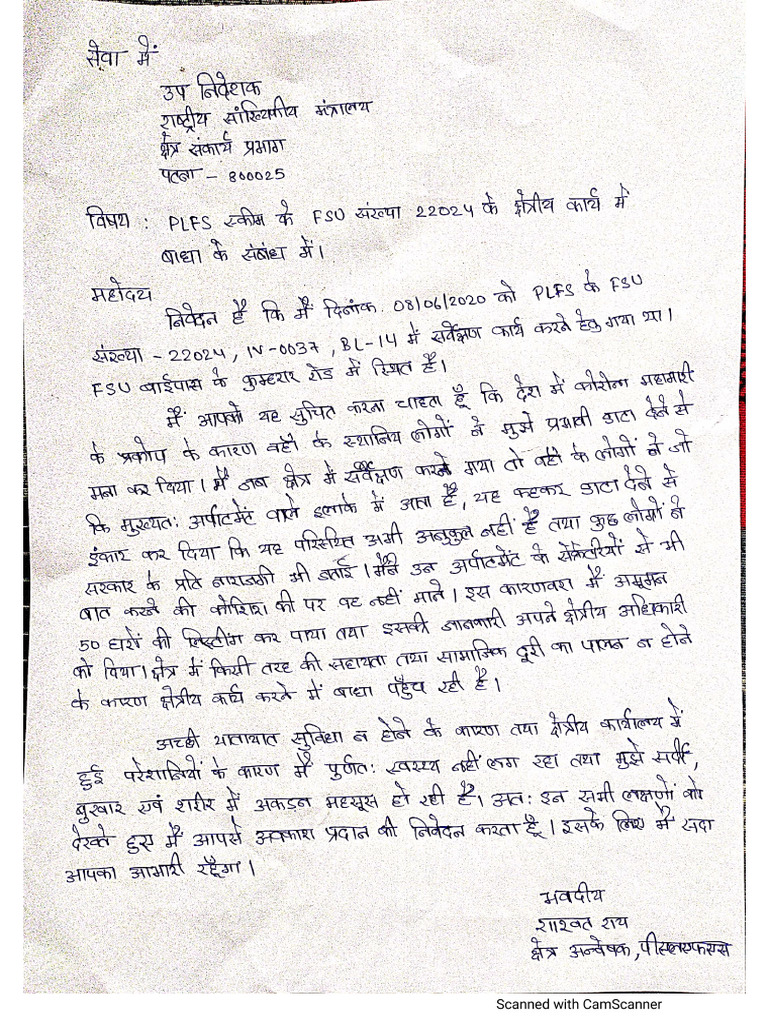 सेवा में
उप निदेशक
राष्ट्रीय सांख्यिकीय मंत्रालय
क्षेत्र संकार्य प्रभाग
पटना - 800025
विषय : PLFS स्कीम के FSU संख्या 22024 के क्षेत्रीय कार्य में
बाधा के संबंध में।
महोदय
निवेदन है कि मैं दिनांक 08/06/2020 को PLFS के FSU
संख्या - 22024, IV-0037, BL-14 में सर्वेक्षण कार्य करने हेतु गया था।
FSU बाईपास के कुम्हरार रोड में स्थित है।
मैं आपको यह सुचित करना चाहता हूँ कि देश में कोरोना महामारी
के प्रकोप के कारण वहाँ के स्थानिय लोगों ने मुझे प्रभावी डाटा देने से
मना कर दिया। मैं जब क्षेत्र में सर्वेक्षण करने गया तो वहाँ के लोगों ने जो
कि मुख्यत: अर्पाटमेंट वाले इलाके में आता है, यह कहकर डाटा देने से
इंकार कर दिया कि यह परिस्थित अभी अनुकुल नहीं है तथा कुछ लोगों ने
सरकार के प्रति नाराजगी भी जताई। मैंने उन अर्पाटमेंट के सेक्रेटरियों से भी
बात करने की कोशिश की पर वह नहीं माने। इस कारणवश मैं अमूमन
50 घरों की लिस्टींग कर पाया तथा इसकी जानकारी अपने क्षेत्रीय अधिकारी
को दिया। क्षेत्र में किसी तरह की सहायता तथा सामाजिक दूरी का पालन न होने
के कारण क्षेत्रीय कार्य करने में बाधा पहुँच रही है।
अच्छी यातायात सुविधा न होने के कारण तथा क्षेत्रीय कार्यालय में
हुई परेशानियों के कारण मैं पुर्णत: स्वस्थ्य नहीं लग रहा तथा मुझे सर्दी,
बुखार एवं शरीर में अकड़न महसूस हो रही है। अत: इन सभी लक्षणों को
देखते हुए मैं आपसे अवकाश प्रदान की निवेदन करता हूँ। इसके लिए मैं सदा
आपका आभारी रहूँगा।
भवदीय
शाश्वत राय
क्षेत्र अन्वेषक, पीएलएफएस
Scanned with CamScanner